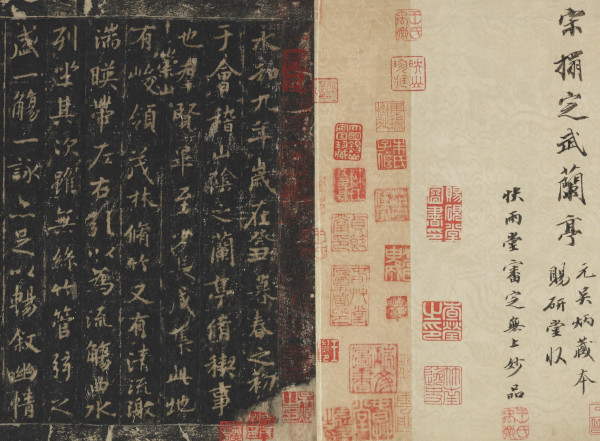 宋搨定武蘭亭
元吳炳藏本
賜研堂收
快雨堂審定無上妙品
永和九年歲在癸丑暮春之初
于會稽山陰之蘭亭脩稧事
也羣賢畢至少長咸集此地
有崇山峻領茂林脩竹又有清流激
湍暎帶左右引以為流觴曲水
列坐其次雖無絲竹管弦之
盛一觴一詠亦足以暢敘幽情